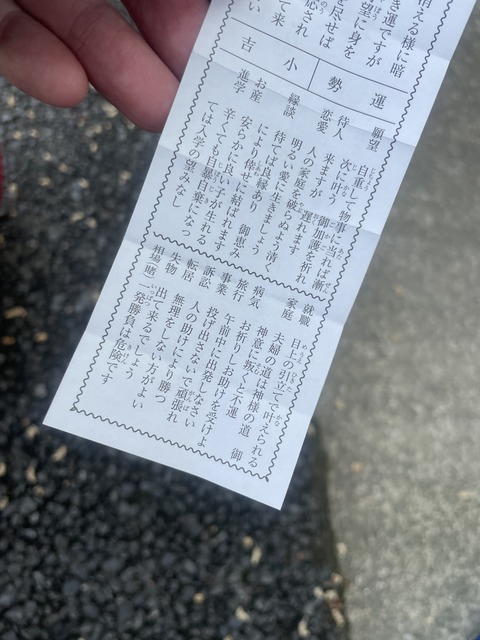 消える様に暗
き運ですが
望に身を
を尽せば
応され
て来
い
運勢
小吉
願望 自重して物事に当れば漸
次に叶う 御加護を祈れ
待人 来ますが 遅れます
恋愛 人の家庭を破らぬよう清く
明るい愛に生きましょう
縁談 待てば良縁あり 御恵み
により倖せに結ばれます
お産 安らかに良い子が生れる
進学 辛くても自暴自棄になっ
ては大学の望みなし
就職 目上の引立てで叶えられる
家庭 夫婦の道は神様の道 御
神意に叛くと不運
病気 お祈りしお助けを受けよ
旅行 午前中に出発しなさい
事業 投げ出さないで頑張れ
訴訟 人の助けにより勝つ
転居 無理をしない方がよい
失物 出て来るでしょう
相場(賭) 一発勝負は危険です